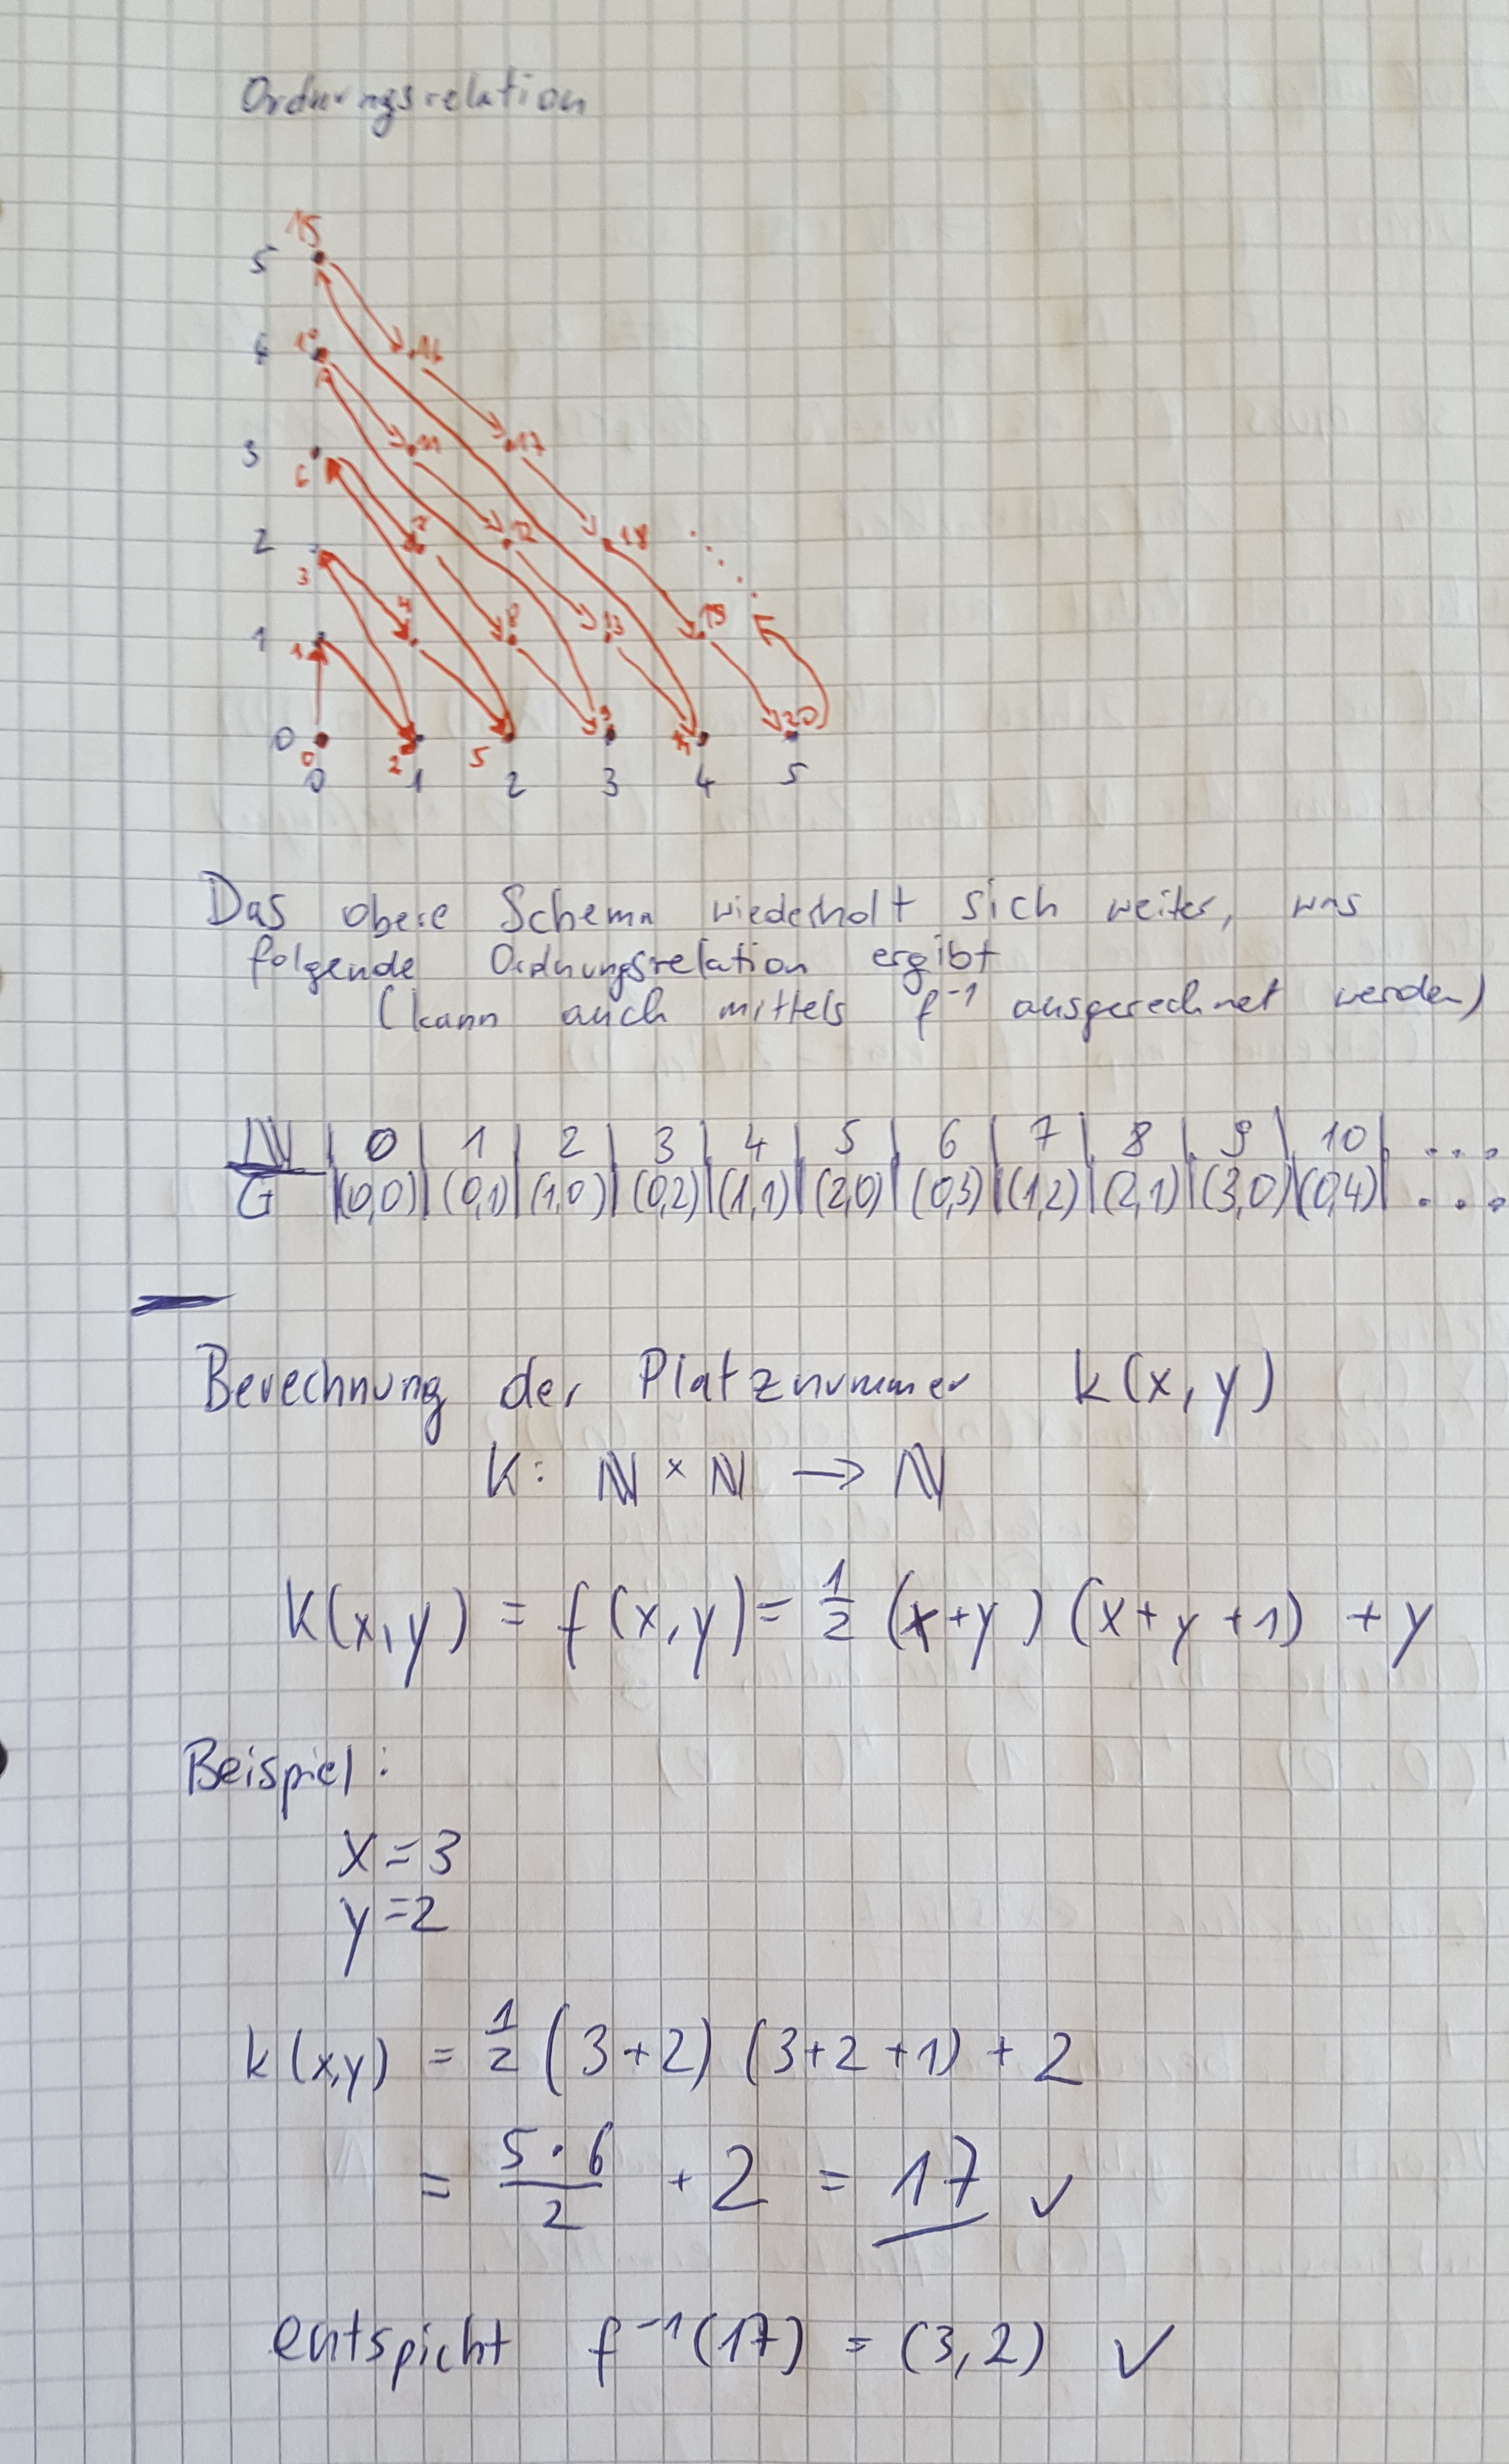 Ordnungsrelation
15
5
16
4 10
11 17
3
6
7 12 18
2
3
4 8 13 19
1 1
9 20
0 0 2 5
0 1 2 3 4 5
Das obere Schema wiederholt sich weiter, was
folgende Ordnungsrelation ergibt
(kann auch mittels f⁻¹ ausgerechnet werden)
ℕ | 0 | 1 | 2 | 3 | 4 | 5 | 6 | 7 | 8 | 9 | 10 | ...
G | (0,0) | (0,1) | (1,0) | (0,2) | (1,1) | (2,0) | (0,3) | (1,2) | (2,1) | (3,0) | (0,4) | ...
Berechnung der Platznummer k(x,y)
K: ℕ × ℕ → ℕ
K(x,y) = f(x,y) = 1/2 (x+y) (x+y+1) + y
Beispiel:
x=3
y=2
k(x,y) = 1/2 (3+2) (3+2+1) + 2
= 5·6/2 + 2 = 17 ✓
entspicht f⁻¹(17) = (3,2) ✓